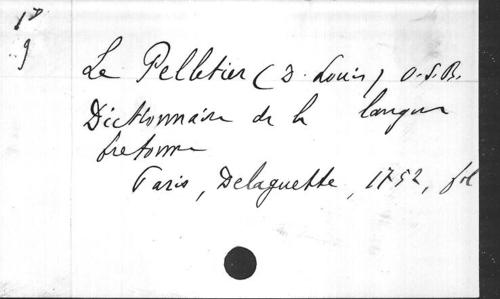 1D
9
Le Pelletier (D. Louis) O.S.B.
Dictionnaire de la langue
bretonne
Paris, Delaguette, 1752, fol